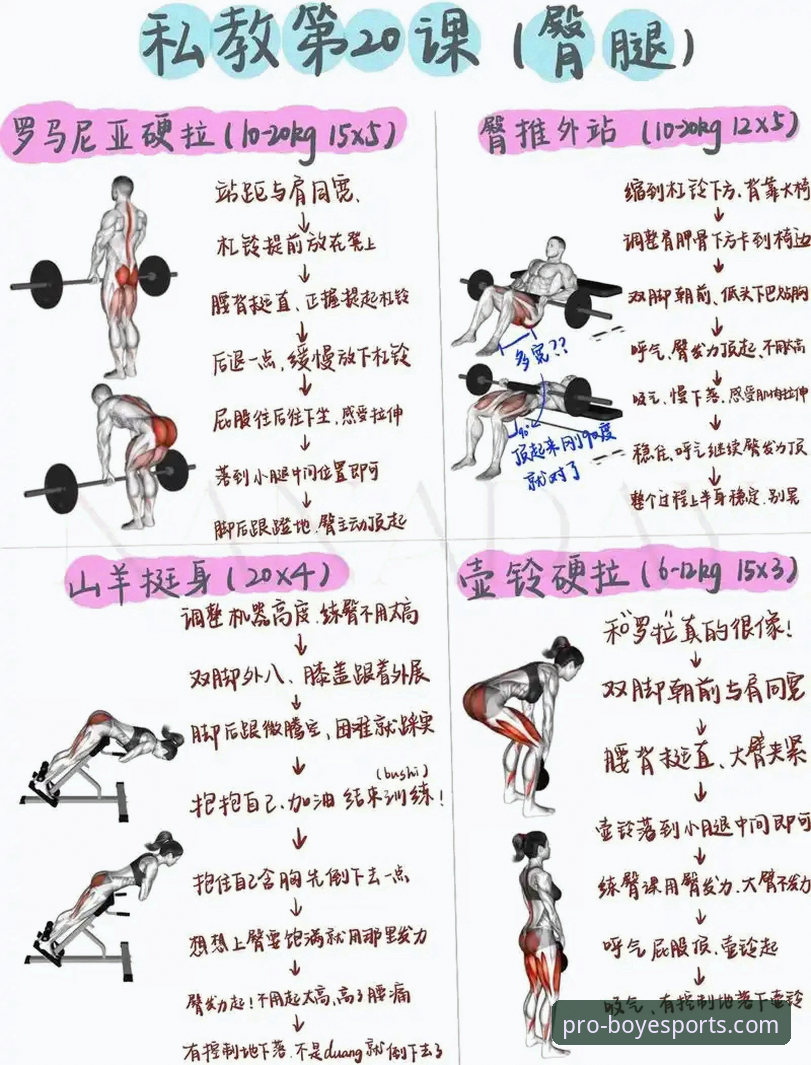 私教第20课(臀腿)
罗马尼亚硬拉(10-20kg 15x5)
站距与肩同宽、
↓
杠铃提前放在凳上
↓
腰背挺直、正握提起杠铃
↓
后退一点,缓慢放下杠铃
↓
屁股往后往下坐,感受拉伸
↓
落到小腿中间位置即可
↓
脚后跟蹬地、臀主动顶起
臀推外站 (10-20kg 12x5)
缩到杠铃下方、背靠大椅
↓
调整肩胛骨下方卡到椅边
↓
双脚朝前、低头下巴贴胸
↓
呼气、臀发力顶起、不用太高
↓
吸气、慢下落、感受肌肉拉伸
↓
稳住、呼气继续臀发力顶
↓
整个过程上半身稳定、别晃
多宽??
90°
顶起来刚90度
就对了
山羊挺身(20x4)
调整机器高度、练臀不用太高
↓
双脚外八、膝盖跟着外展
↓
脚后跟微腾空、困难就踩实
↓
(bushi)
抱抱自己、加油 结束训练!
↓
抱住自己含胸先倒下去一点
↓
想想上臀要饱满就用那里发力
↓
臀发力起!不用起太高、高了腰痛
↓
有控制地下落、不是duang就倒下去了
壶铃硬拉(6-12kg 15x3)
和“罗拉”真的很像!
↓
双脚朝前与肩同宽
↓
腰背挺直、大臂夹紧
↓
壶铃落到小腿中间即可
↓
练臀课用臀发力、大臂不发力
↓
呼气 屁股顶、壶铃起
↓
吸气、有控制地落下壶铃
pro-boyesports.com